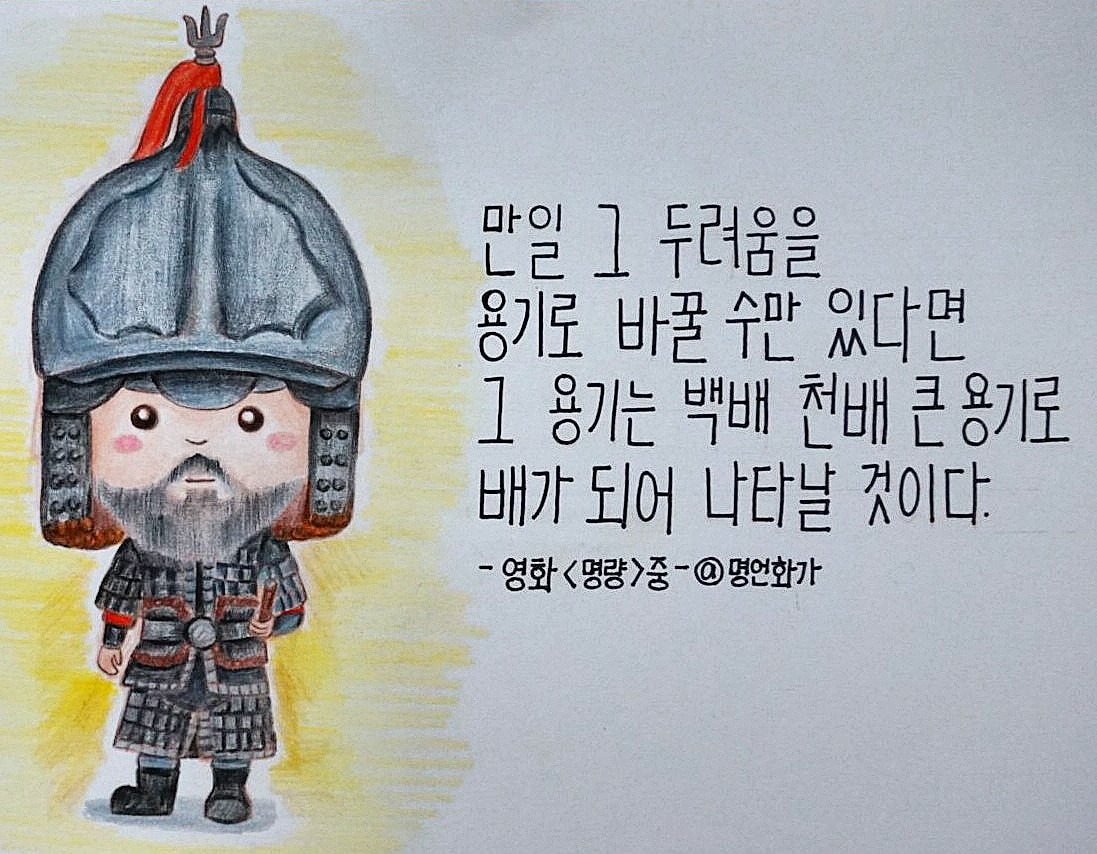 만일 그 두려움을
용기로 바꿀 수만 있다면
그 용기는 백배 천배 큰 용기로
배가 되어 나타날 것이다.
- 영화 <명량> 중 - @명언화가